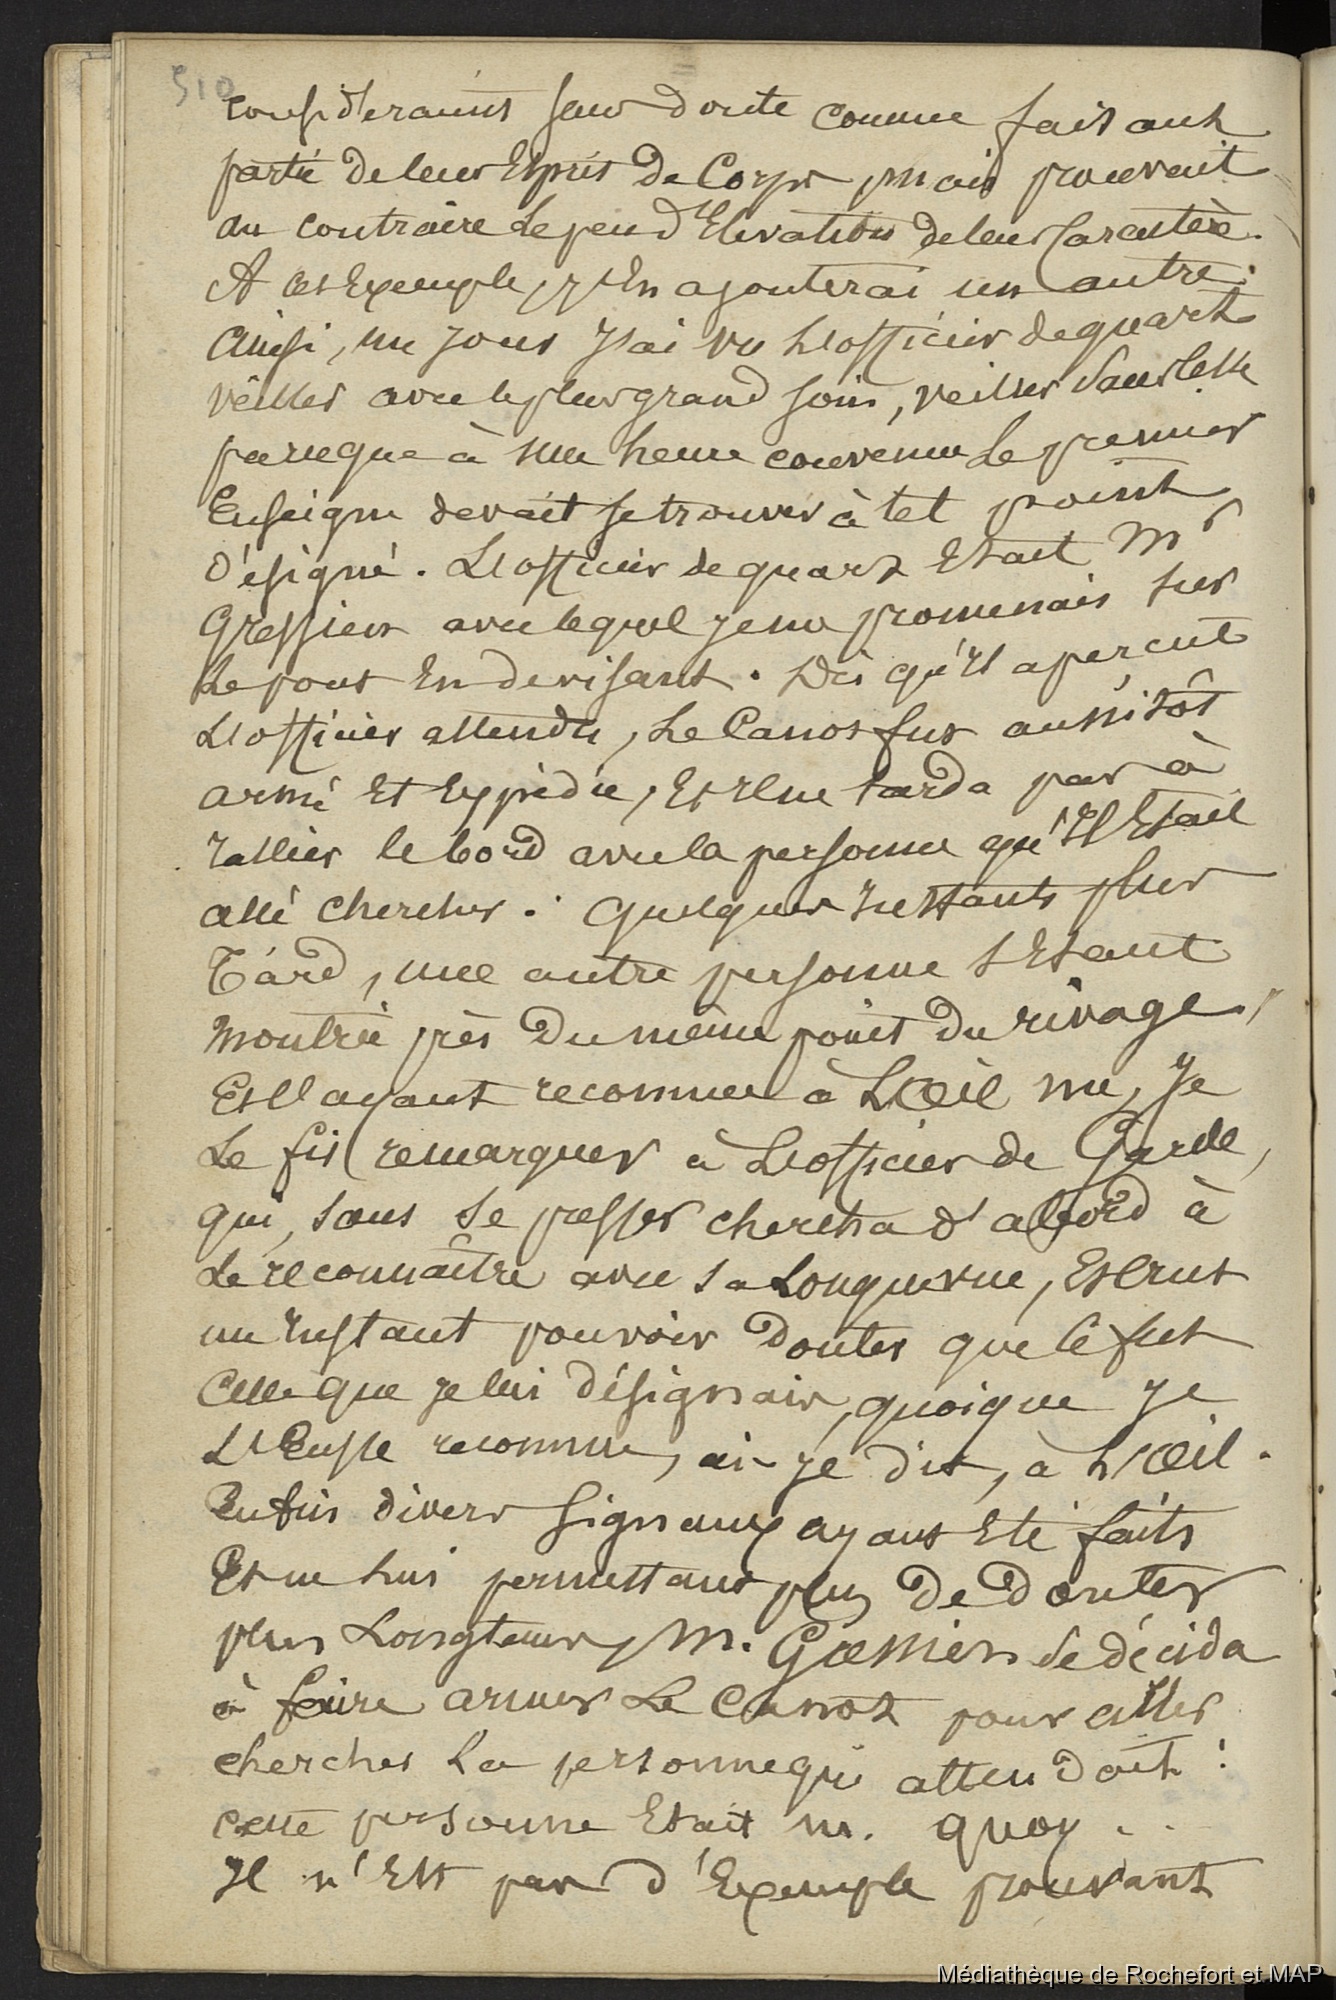 510
considéraient sans doute comme faisant
partie de leur Esprit de Corps, mais prouvait
au contraire le peu d'Elevation de leur Caractère.
A cet Exemple, j'en ajouterai un autre.
Ainsi, un jour j'ai vu L'officier de quart
veiller avec le plus grand soin, veiller sans cesse
parceque à une heure convenue Le premier
Enseigne devait se trouver à tel point
désigné. L'officier de quart Etait Mr
Gressien avec lequel je me promenais sur
Le pont En devisant. Dès qu'il aperçut
L'officier attendu, Le Canot fut aussitôt
armé Et Expédié, Et Il ne tarda pas à
rallier le bord avec la personne qu'Il Etait
allé chercher. Quelques Instants plus
Tard, une autre personne s'Etant
montrée près du même point du rivage,
Et l'ayant reconnue à L'OEil nu, Je
Le fis remarquer à L'officier de Garde,
qui, sans se presser chercha d'abord à
Le reconnaître avec sa Longuevue, Et crut
un Instant pouvoir Douter que Ce fut
Celle que je lui désignais, quoique Je
L'Eusse reconnue, ai-je dit, à L'OEil.
Enfin divers signaux ayant Eté faits
Et ne lui permettant plus De Douter
plus Longtems, M. Gressien se décida
à faire armer Le Canot pour aller
chercher La personne qui attendait :
cette personne Etait M. Quoy . .
Il n'Est pas d'Exemple pouvant
Médiathèque de Rochefort et MAP